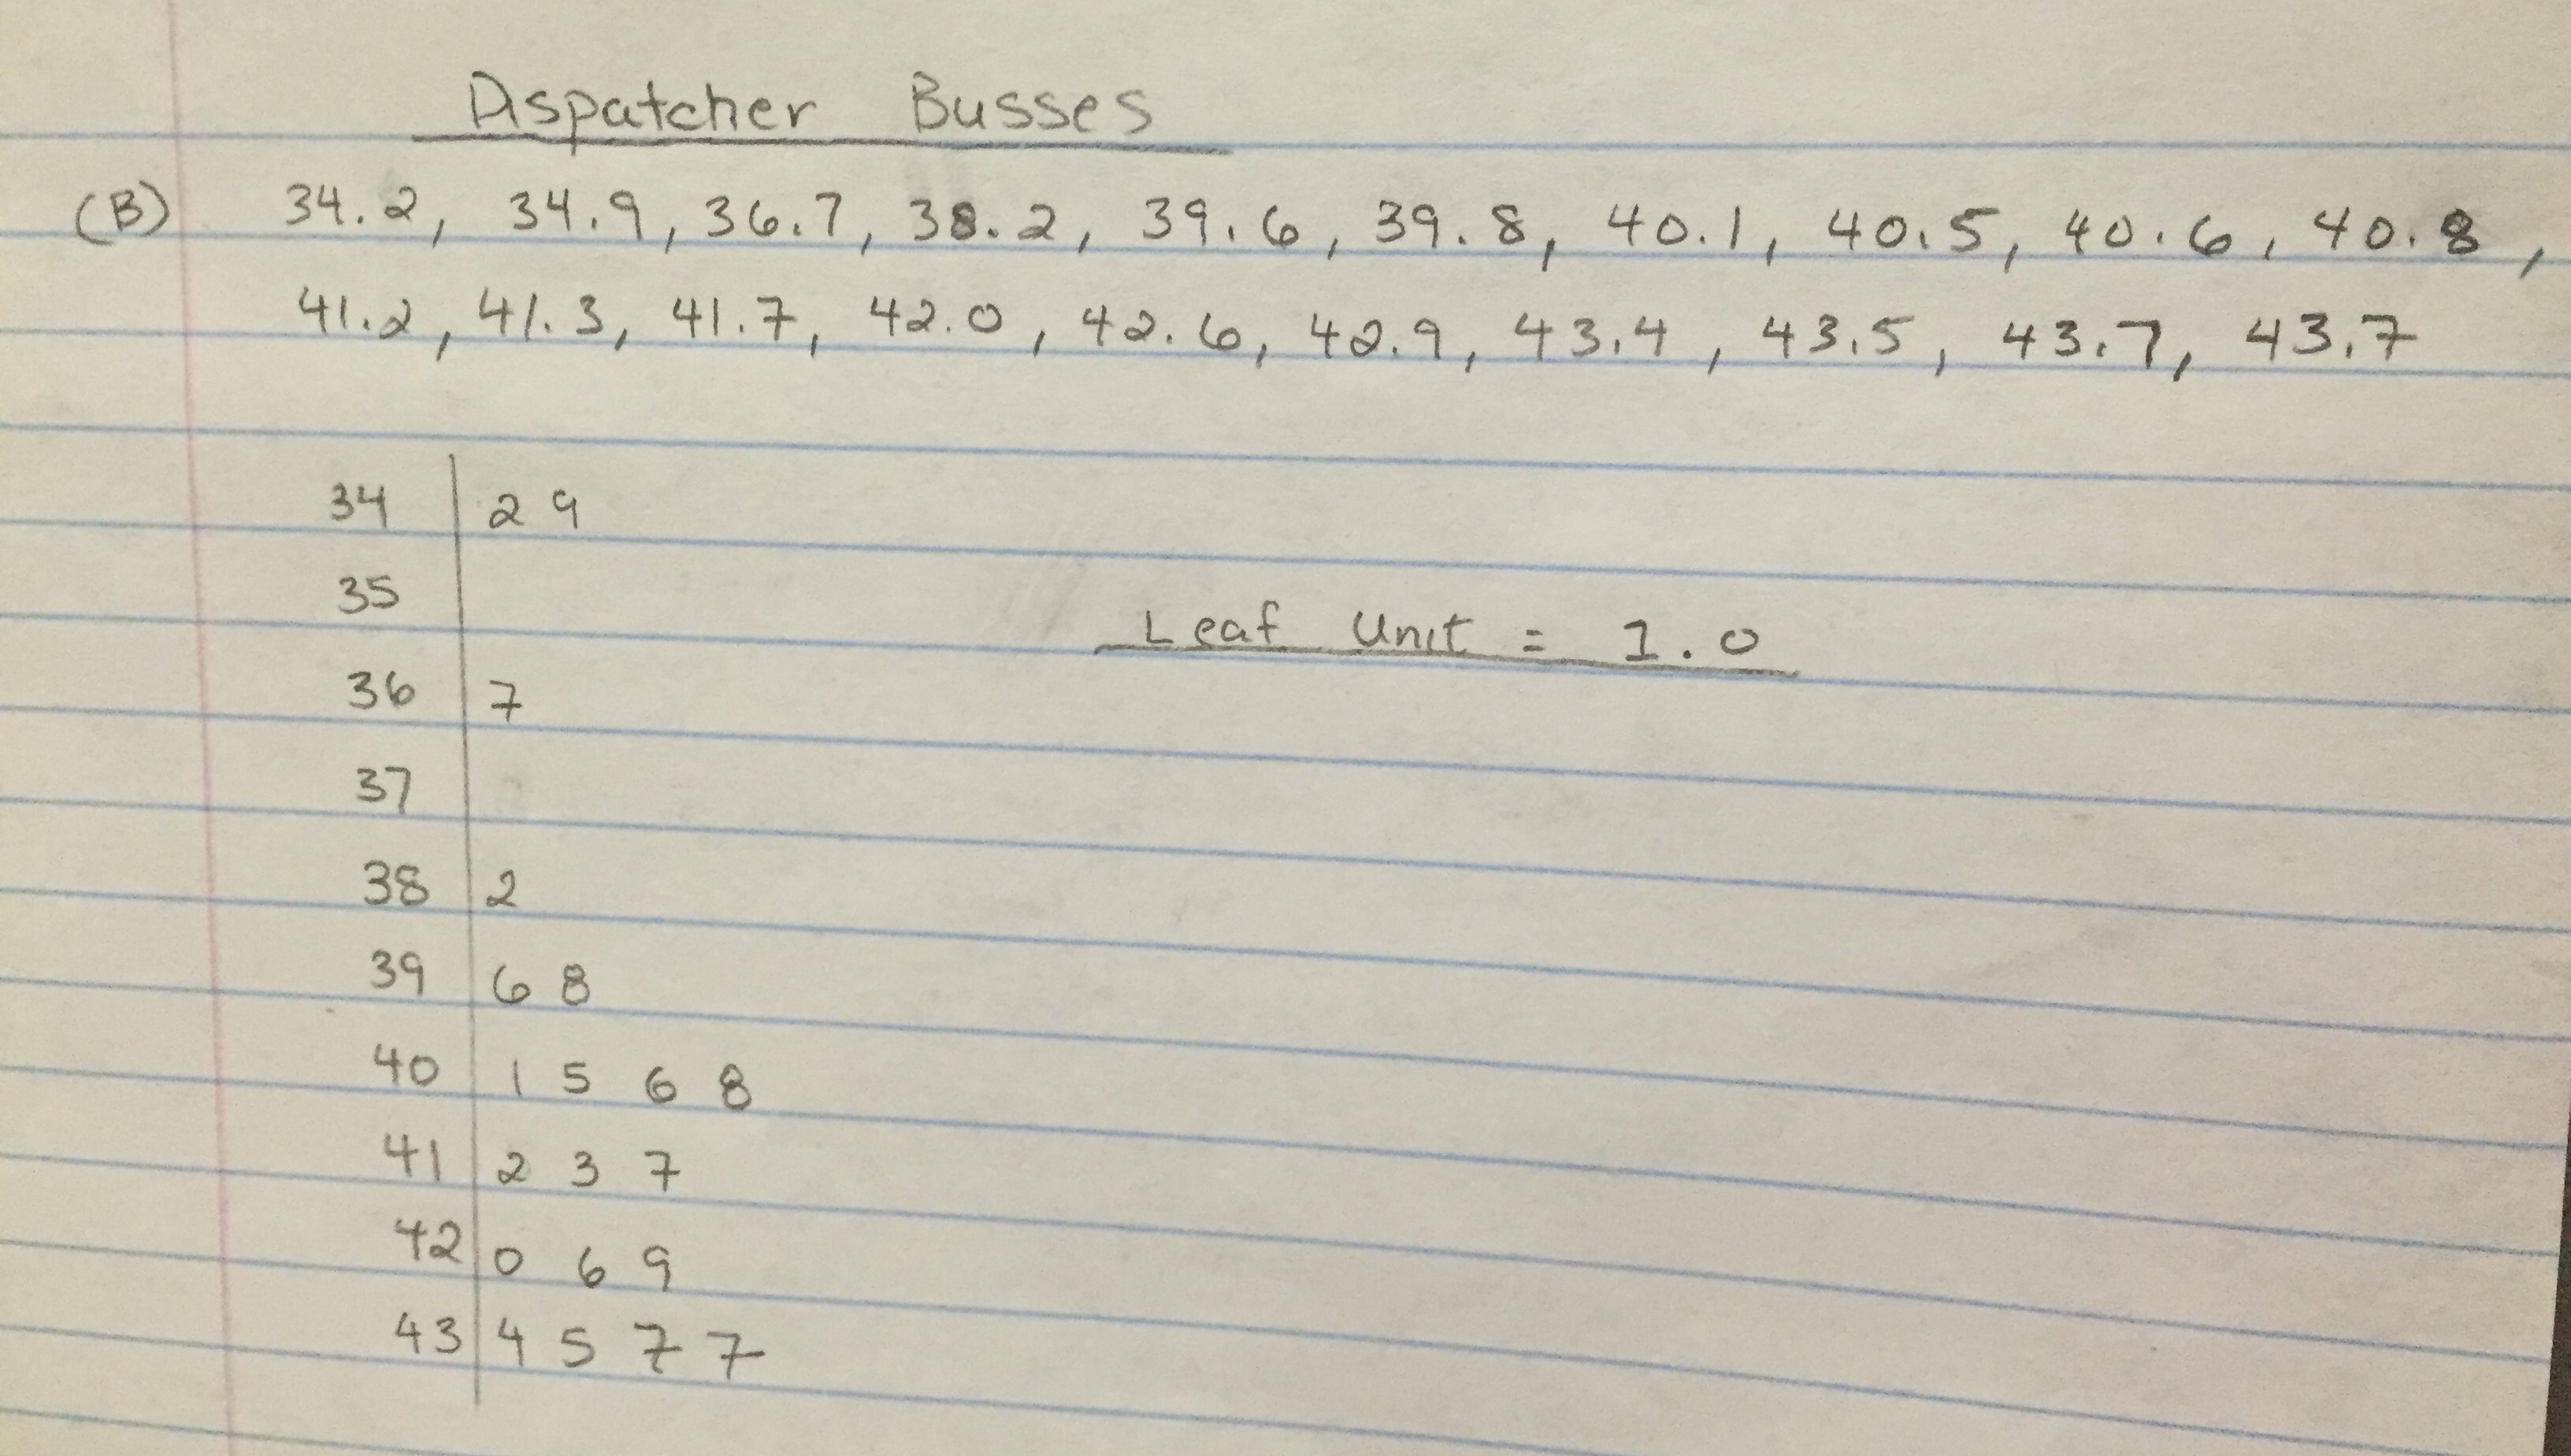 Dispatcher Busses
(B) 34.2, 34.9, 36.7, 38.2, 39.6, 39.8, 40.1, 40.5, 40.6, 40.8,
41.2, 41.3, 41.7, 42.0, 42.6, 42.9, 43.4, 43.5, 43.7, 43.7
34 | 2 9
35 |
Leaf Unit = 1.0
36 | 7
37 |
38 | 2
39 | 6 8
40 | 1 5 6 8
41 | 2 3 7
42 | 0 6 9
43 | 4 5 7 7